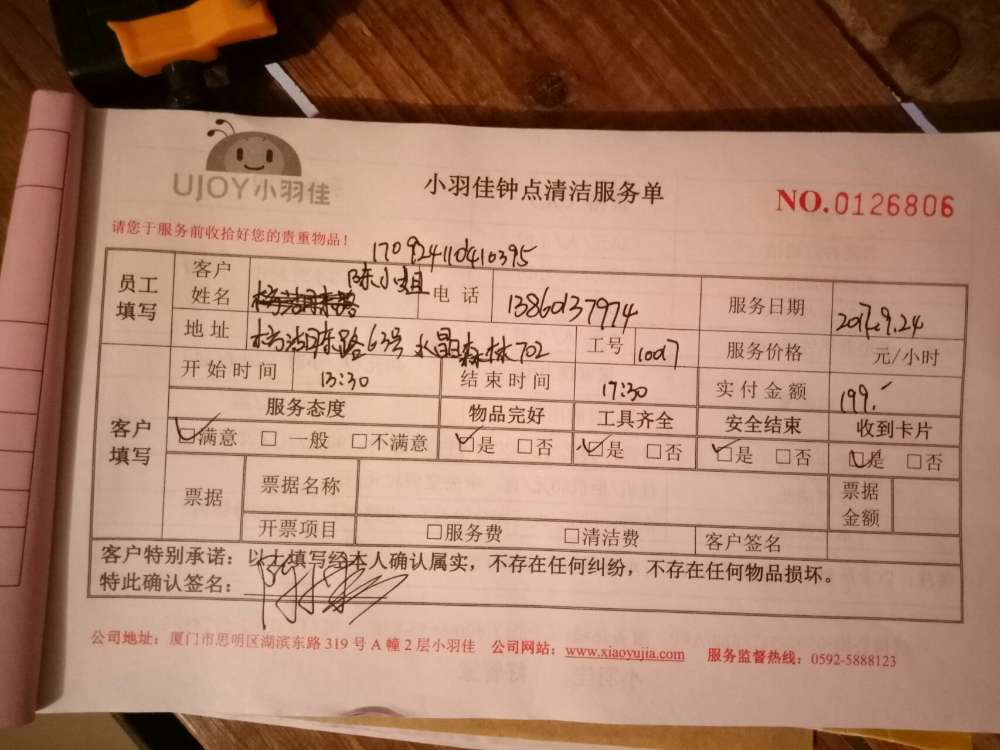 UJOY小羽佳
小羽佳钟点清洁服务单
NO.0126806
请您于服务前收拾好您的贵重物品！
170924110410395
员工填写 客户姓名 陈小姐 电话 13860137974 服务日期 2017.9.24
地址 东路63号水晶森林702 工号 1007 服务价格 元/小时
客户填写 开始时间 13:30 结束时间 17:30 实付金额 199.
服务态度 物品完好 工具齐全 安全结束 收到卡片
☑满意 □一般 □不满意 ☑是 □否 ☑是 □否 ☑是 □否 ☑是 □否
票据 票据名称 票据金额
开票项目 □服务费 □清洁费 客户签名
客户特别承诺：以上填写经本人确认属实，不存在任何纠纷，不存在任何物品损坏。
特此确认签名：
公司地址：厦门市思明区湖滨东路319号A幢2层小羽佳 公司网站：www.xiaoyujia.com 服务监督热线：0592-5888123